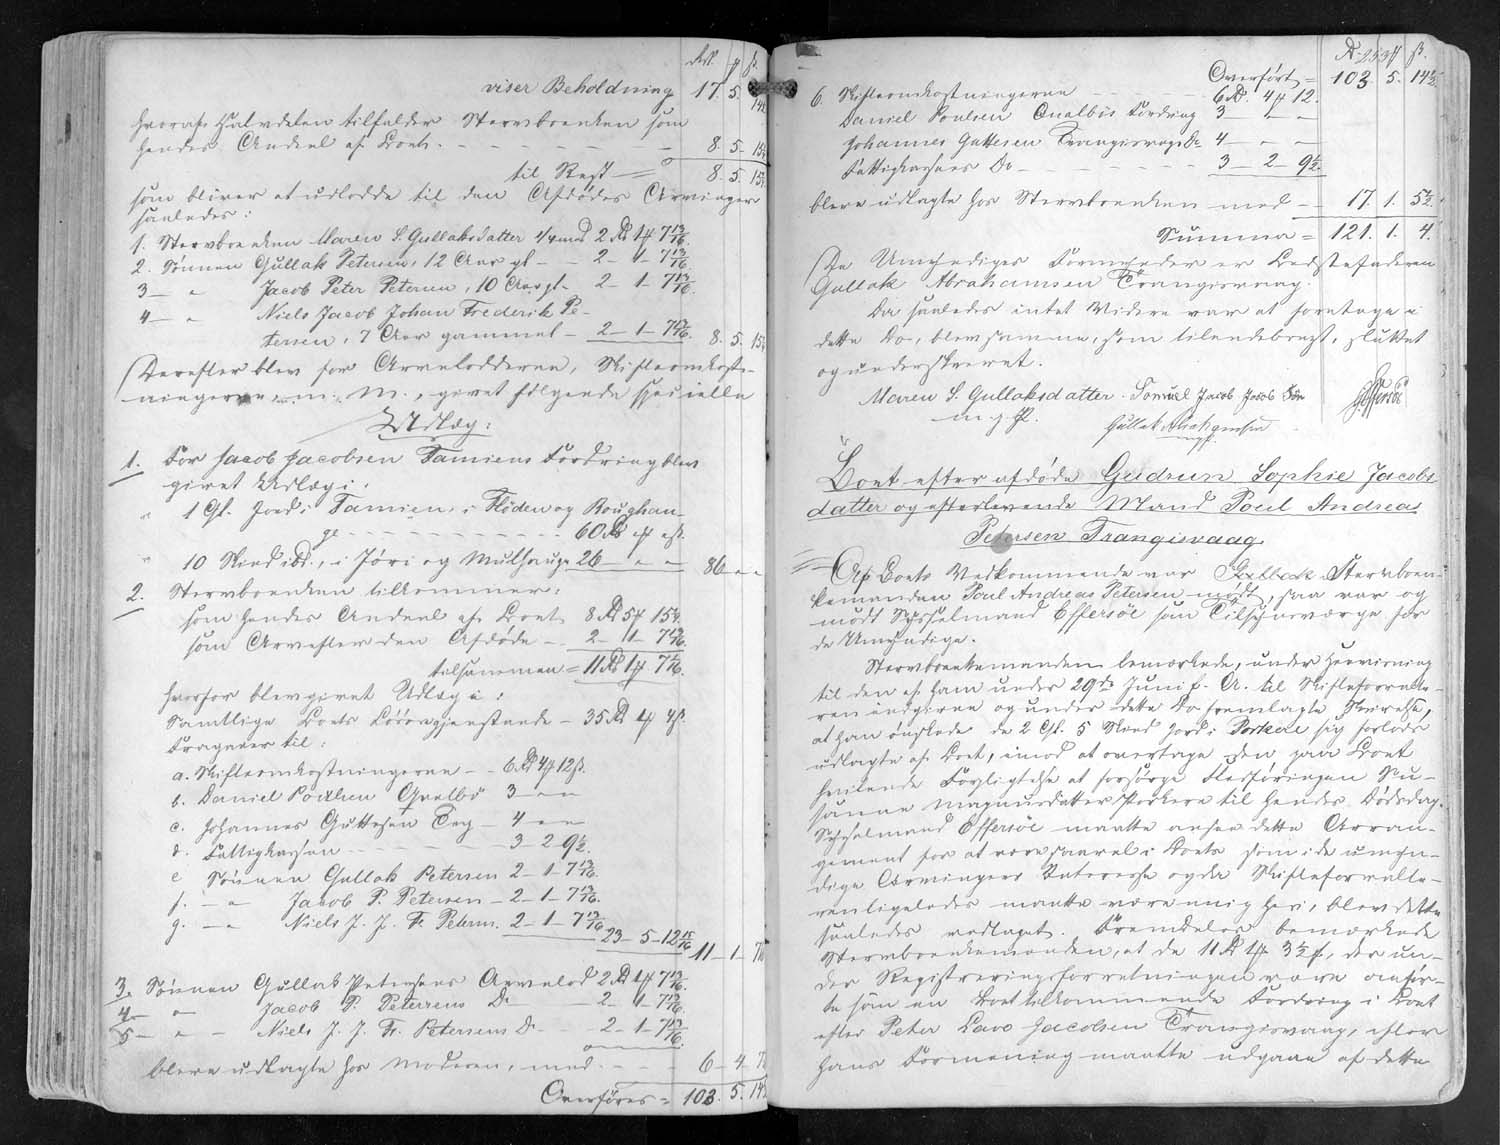 Rd. ℳ ß.
viser Beholdning 17. 5. 14½
hvoraf Halvdelen tilfalder Stervboenken som
hendes Andeel af Boet. 8. 5. 15¼
til Rest 8. 5. 15¼
som bliver at udlodde til den Afdødes Arvinger
saaledes:
1. Stervboenken Maren S. Gullaksdatter 1/4 med 2 Rd 1ℳ 7 13/16.
2. Sønnen Gullak Petersen, 12 Aar gl - 2 - 1 - 7 13/16
3 - " Jacob Peter Petersen, 10 Aar gl - 2 - 1 - 7 13/16.
4 - " Niels Jacob Johan Frederik Pe-
tersen, 7 Aar gammel - 2 - 1 - 7 13/16. 8. 5. 15¼
Derefter blev for Arvelodderne, Skifteomkost-
ningerne, m. M., givet følgende specielle
Udlæg:
1. For Jacob Jacobsen Famiens Fordring blev
givet Udlæg i:
" 1 Gl. Jord i Famien, i Fløden og Roughau-
ge 60 Rd "ℳ "ß.
" 10 Skind ibd., i Jøri og Mulhauge 26 - " - " 86 " "
2. Stervboenken tilkommer:
som hendes Andeel af Boet 8 Rd 5ℳ 15¼.
som Arv efter den Afdøde - 2 - 1 - 7 13/16.
tilsammen = 11 Rd 1ℳ 7 1/16.
hvorfor blev givet Udlæg i:
Samtlige Boets Løsøregjenstande - 35 Rd "ℳ 4ß.
Fragaaer til:
a. Skifteomkostningerne - - 6 Rd 4ℳ 12ß.
b. Daniel Poulsen Qvalbø 3 - " - "
c. Johannes Guttesen Trg - 4 - " - "
d. Fattigkassen 3 2 9½.
e Sønnen Gullak Petersen 2 - 1 - 7 13/16.
f. - " Jacob P. Petersen - 2 - 1 - 7 13/16.
g. - " Niels J. J. F. Petersen. 2 - 1 - 7 13/16
23 - 5 - 12 15/16 11 - 1 - 7 1/16
3. Sønnen Gullak Petersens Arvelod 2 Rd 1ℳ 7 13/16.
4 - " Jacob P. Petersens Do 2 - 1 - 7 13/16
5 - " - Niels J. J. Fr. Petersens Do - - 2 - 1 - 7 13/16.
bleve udlagte hos Moderen, med - - - 6 - 4 - 7
Overføres = 103. 5. 14½
Rd. 253 ℳ ß.
Overført = 103. 5. 14½
6. Skifteomkostningerne 6 Rd. 4ℳ 12.
Daniel Poulsen Qvalbøs Fordring 3 - " - "
Johannes Guttesen Trangisvaags Do 4 - " - "
Fattigkassens Do 3 - 2 - 9½.
bleve udlagte hos Stervboenken med - 17. 1. 5½.
Summa = 121. 1. 4.
De Umyndiges Formynder er Bedstefaderen
Gullak Abrahamsen Trangisvaag.
Da saaledes intet Videre var at foretage i
dette Bo, blev samme, som tilendebragt, sluttet
og underskrevet.
Maren S. Gullaksdatter. Somuel Jacob Jacob Søn Effersøe
m. f. P.
Gullak Abrahamsen
m. f. P.
Boet efter afdøde Gudrun Sophie Jacobs
datter og efterlevende Mand Poul Andreas
Petersen Trangisvaag.
Af Boets Vedkommende var Stervboen-
kemanden Poul Andreas Petersen mødt, saa var og
mødt Sysselmand Effersøe som Tilsynsværge for
de Umyndige.
Stervboenkemanden bemærkede, under Henviisning
til den af ham under 29de Juni f. A. til Skifteforvalte-
ren indgivne og under dette Bo fremlagte Skrivelse,
at han ønskede de 2 Gl. 5 Skind Jord i Porkere sig forlods
udlagte af Boet, imod at overtage den paa Boet
hvilende Forpligtelse at forsørge Fledføringen Su-
sanne Magnusdatter Porkere til hendes Dødsdag.
Sysselmand Effersøe maatte ansee dette Arran-
gement for at være saavel i Boets som i de umyn-
dige Arvingers Interesse og da Skifteforvalte-
ren ligeledes maatte være enig heri, blev dette
saaledes vedtaget. Fremdeles bemærkede
Stervboenkemanden, at de 11 Rd 1ℳ 3½ ß, der un-
der Registreringsforretningen vare anfør-
te som en Boet tilkommende Fordring i Boet
efter Peter Lars Jacobsen Trangisvaag, efter
hans Formening maatte udgaae af dette